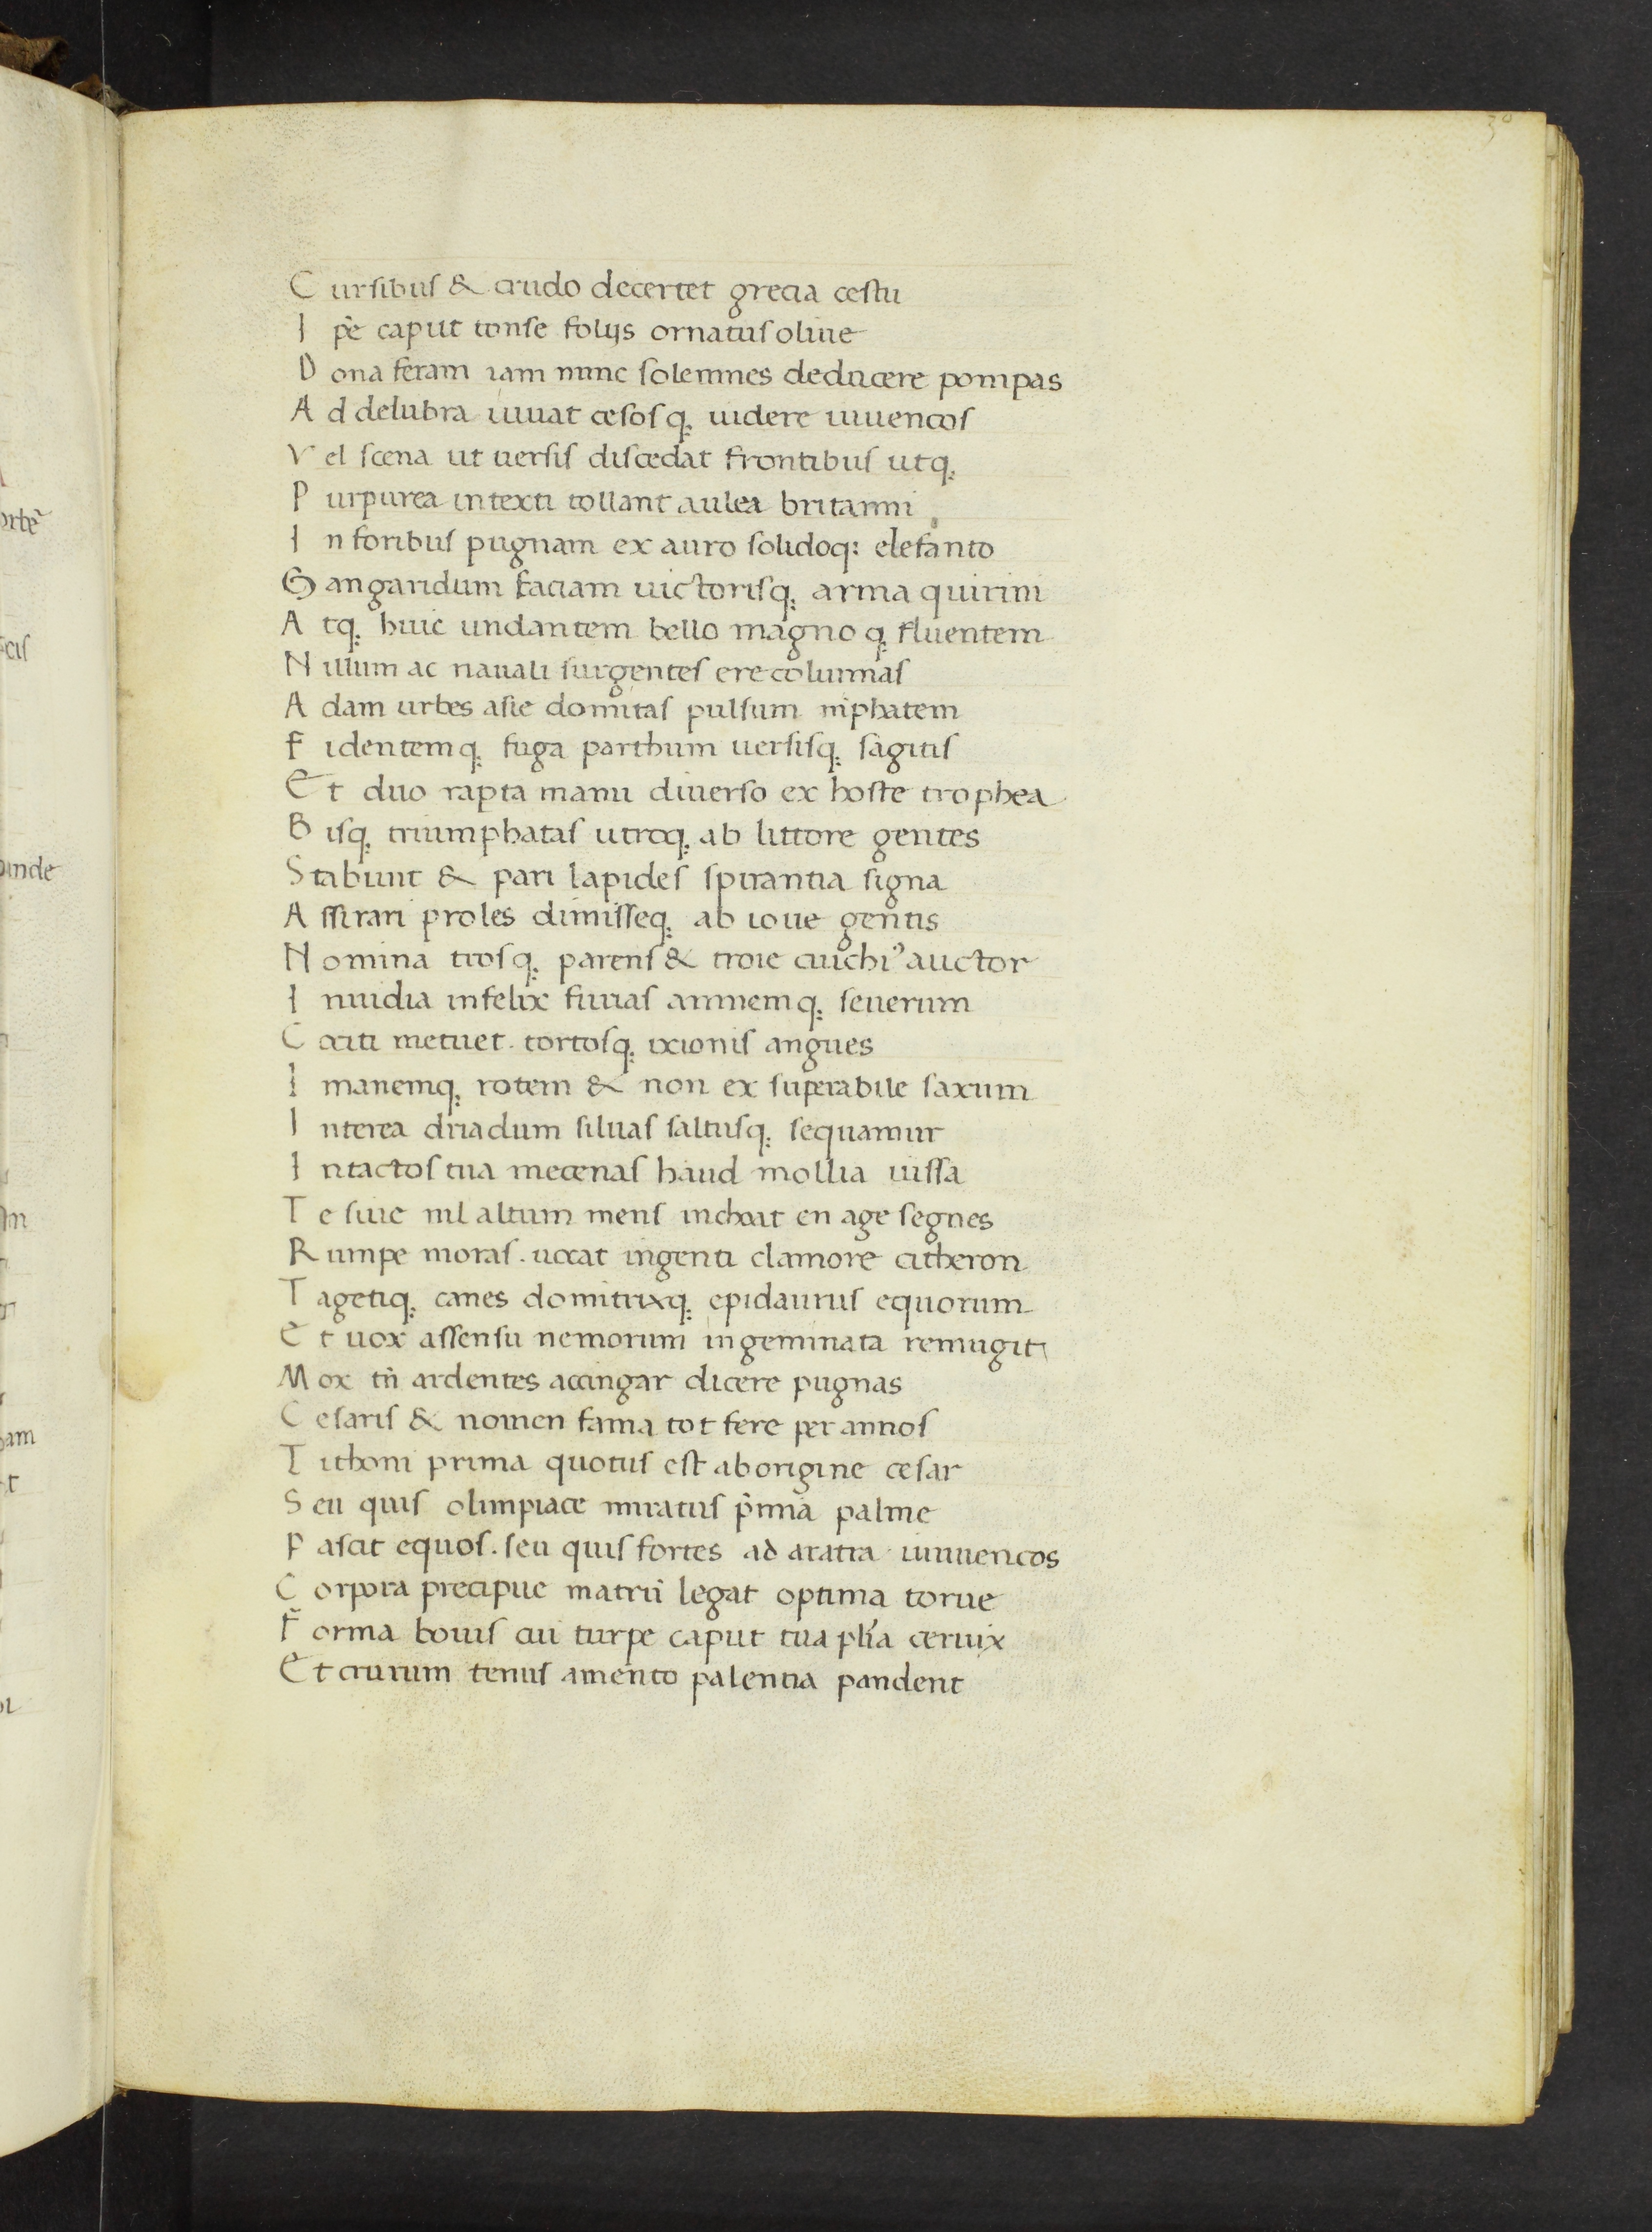 30
Cursibus & crudo decertet grecia cestu
Ip̄e caput tonse folijs ornatus oliue
Dona feram iam nunc solemnes deducere pompas
Ad delubra iuuat cesosq; uidere iuuencos
Vel scena ut uersis discedat frontibus utq;
Purpurea intexti tollant aulea britanni
In foribus pugnam ex auro solidoq; elefanto
Gangaridum faciam uictorisq; arma quirini
Atq; huic undantem bello magnoq; fluentem
Nillum ac nauali surgentes ere columnas
Adam urbes asie domitas pulsum niphatem
Fidentemq; fuga parthum uersisq; sagitis
Et duo rapta manu diuerso ex hoste trophea
Bisq; triumphatas utroq; ab littore gentes
Stabunt & pari lapides spirantia signa
Assirari proles dimisseq; ab ioue gentis
Nomina trosq; parens & troie ciuchi᾽ auctor
Inuidia infelix furias amnemq; seuerum
Cociti metuet. tortosq; ixionis angues
Imanemq; rotem & non ex superabile saxum
Interea driadum siluas saltusq; sequamur
Intactos tua mecenas haud mollia iussa
Te siue nil altum mens inchoat en age segnes
Rumpe moras. uocat ingenti clamore citheron
Tagetiq; canes domitrixq; epidaurus equorum
Et uox assensu nemorum ingeminata remugit
Mox tn̄ ardentes accingar dicere pugnas
Cesaris & nomen fama tot fere per annos
Tithoni prima quotus est ab origine cesar
Seu quis olimpiace miratus p̄mia palme
Pascit equos. seu quis fortes ad aratra iuuuencos
Corpora precipue matrū legat optima torue
Forma bouis cui turpe caput cui pl̄ia ceruix
Et crurum tenus amento palentia pandent